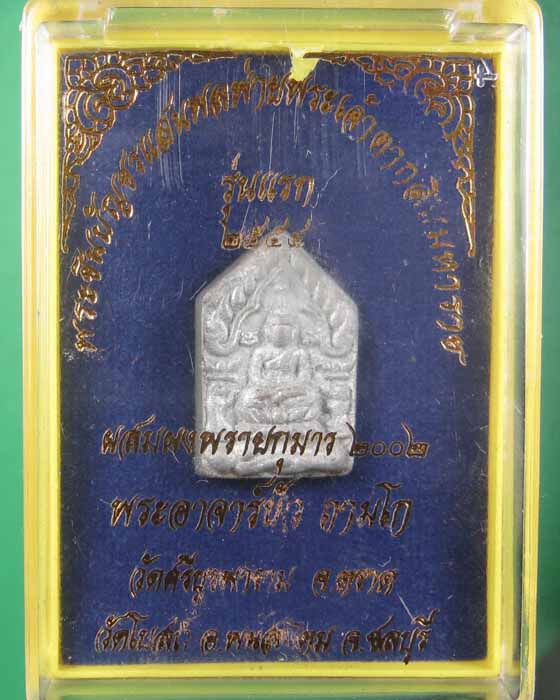 พระชินบัญชรแสนพลพ่ายพระเจ้าตากสินมหาราช
รุ่นแรก
๒๕๔๔
ผสมผงพรายกุมาร ๒๐๐๒
พระอาจารย์บัว ถามโก
วัดศรีบูรพาราม จ.ตราด
อ.พนัสนิคม จ.ชลบุรี